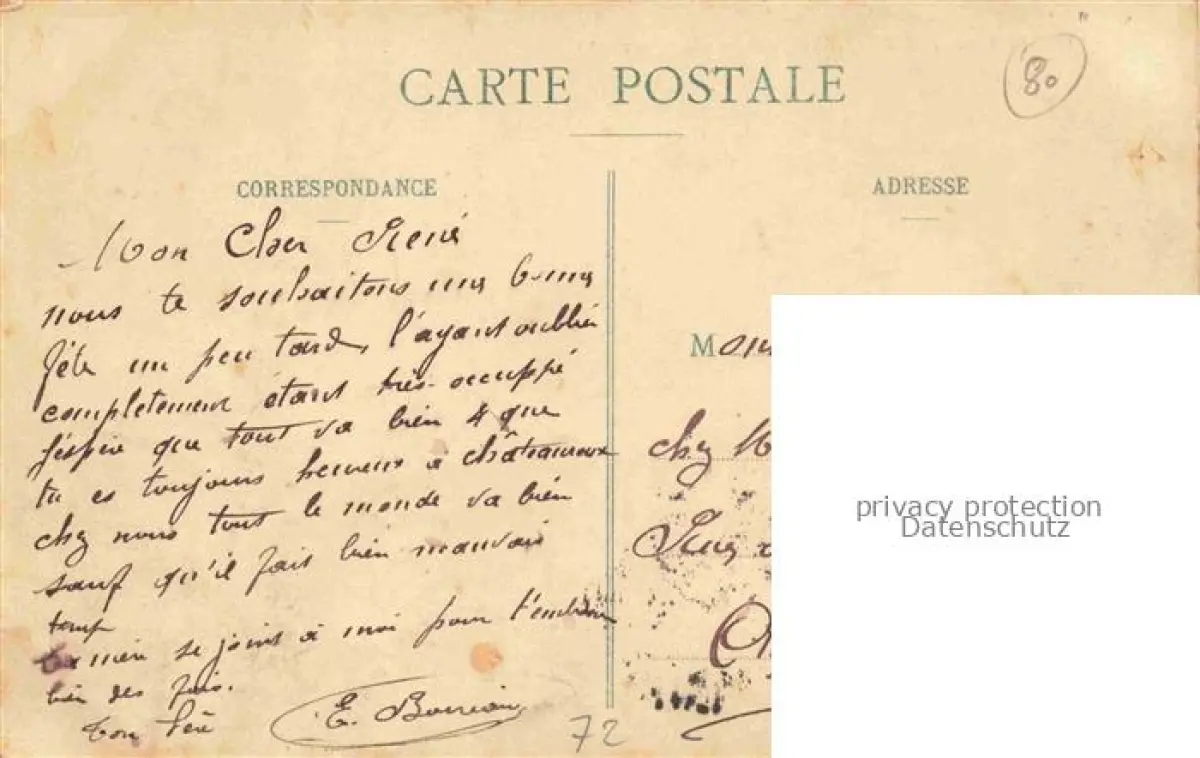 CARTE POSTALE
80
CORRESPONDANCE
ADRESSE
Mon Cher René
nous te souhaitons une bonne
fête un peu tard, l'ayant oublié
completement étant très-occuppé
j'espère que tout va bien & que
tu es toujours heureux à châteauroux
chez nous tout le monde va bien
sauf qu'il fait bien mauvais
temps
ta mère se joint à moi pour t'embrasser
bien des fois.
ton Père
E.
72
M
chez
privacy protection
Datenschutz